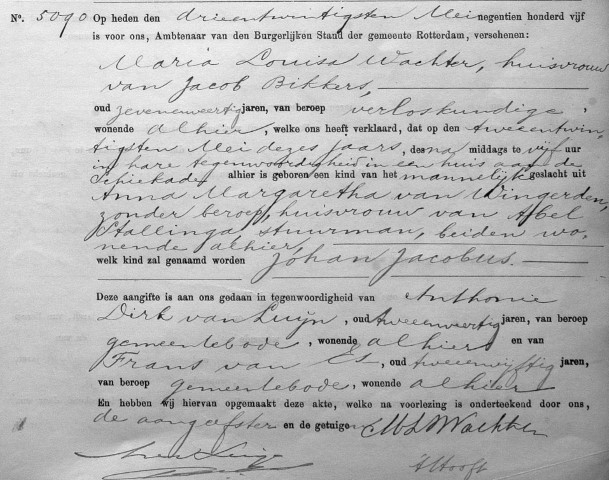 No. 5090 Op heden den drieentwintigsten Mei negentien honderd vijf
is voor ons, Ambtenaar van den Burgerlijken Stand der gemeente Rotterdam, verschenen:
Maria Louisa Wachter, huisvrouw
van Jacob Bikkers,
oud zevenenveertig jaren, van beroep verloskundige,
wonende alhier, welke ons heeft verklaard, dat op den tweeentwin-
tigsten Mei dezes jaars, des na middags te vijf uur
in hare tegenwoordigheid in een huis aan de
Schiekade alhier is geboren een kind van het mannelijk geslacht uit
Anna Margaretha van Wingerden,
zonder beroep, huisvrouw van Abel
Stallinga, stuurman, beiden wo-
nende alhier,
welk kind zal genaamd worden Johan Jacobus.
Deze aangifte is aan ons gedaan in tegenwoordigheid van Anthonie
Dirk van Luijn, oud tweeenveertig jaren, van beroep
gemeentebode, wonende alhier en van
Frans van Es, oud tweeenvijftig jaren,
van beroep gemeentebode, wonende alhier
En hebben wij hiervan opgemaakt deze akte, welke na voorlezing is onderteekend door ons,
de aangeefster en de getuigen. ML Wachter